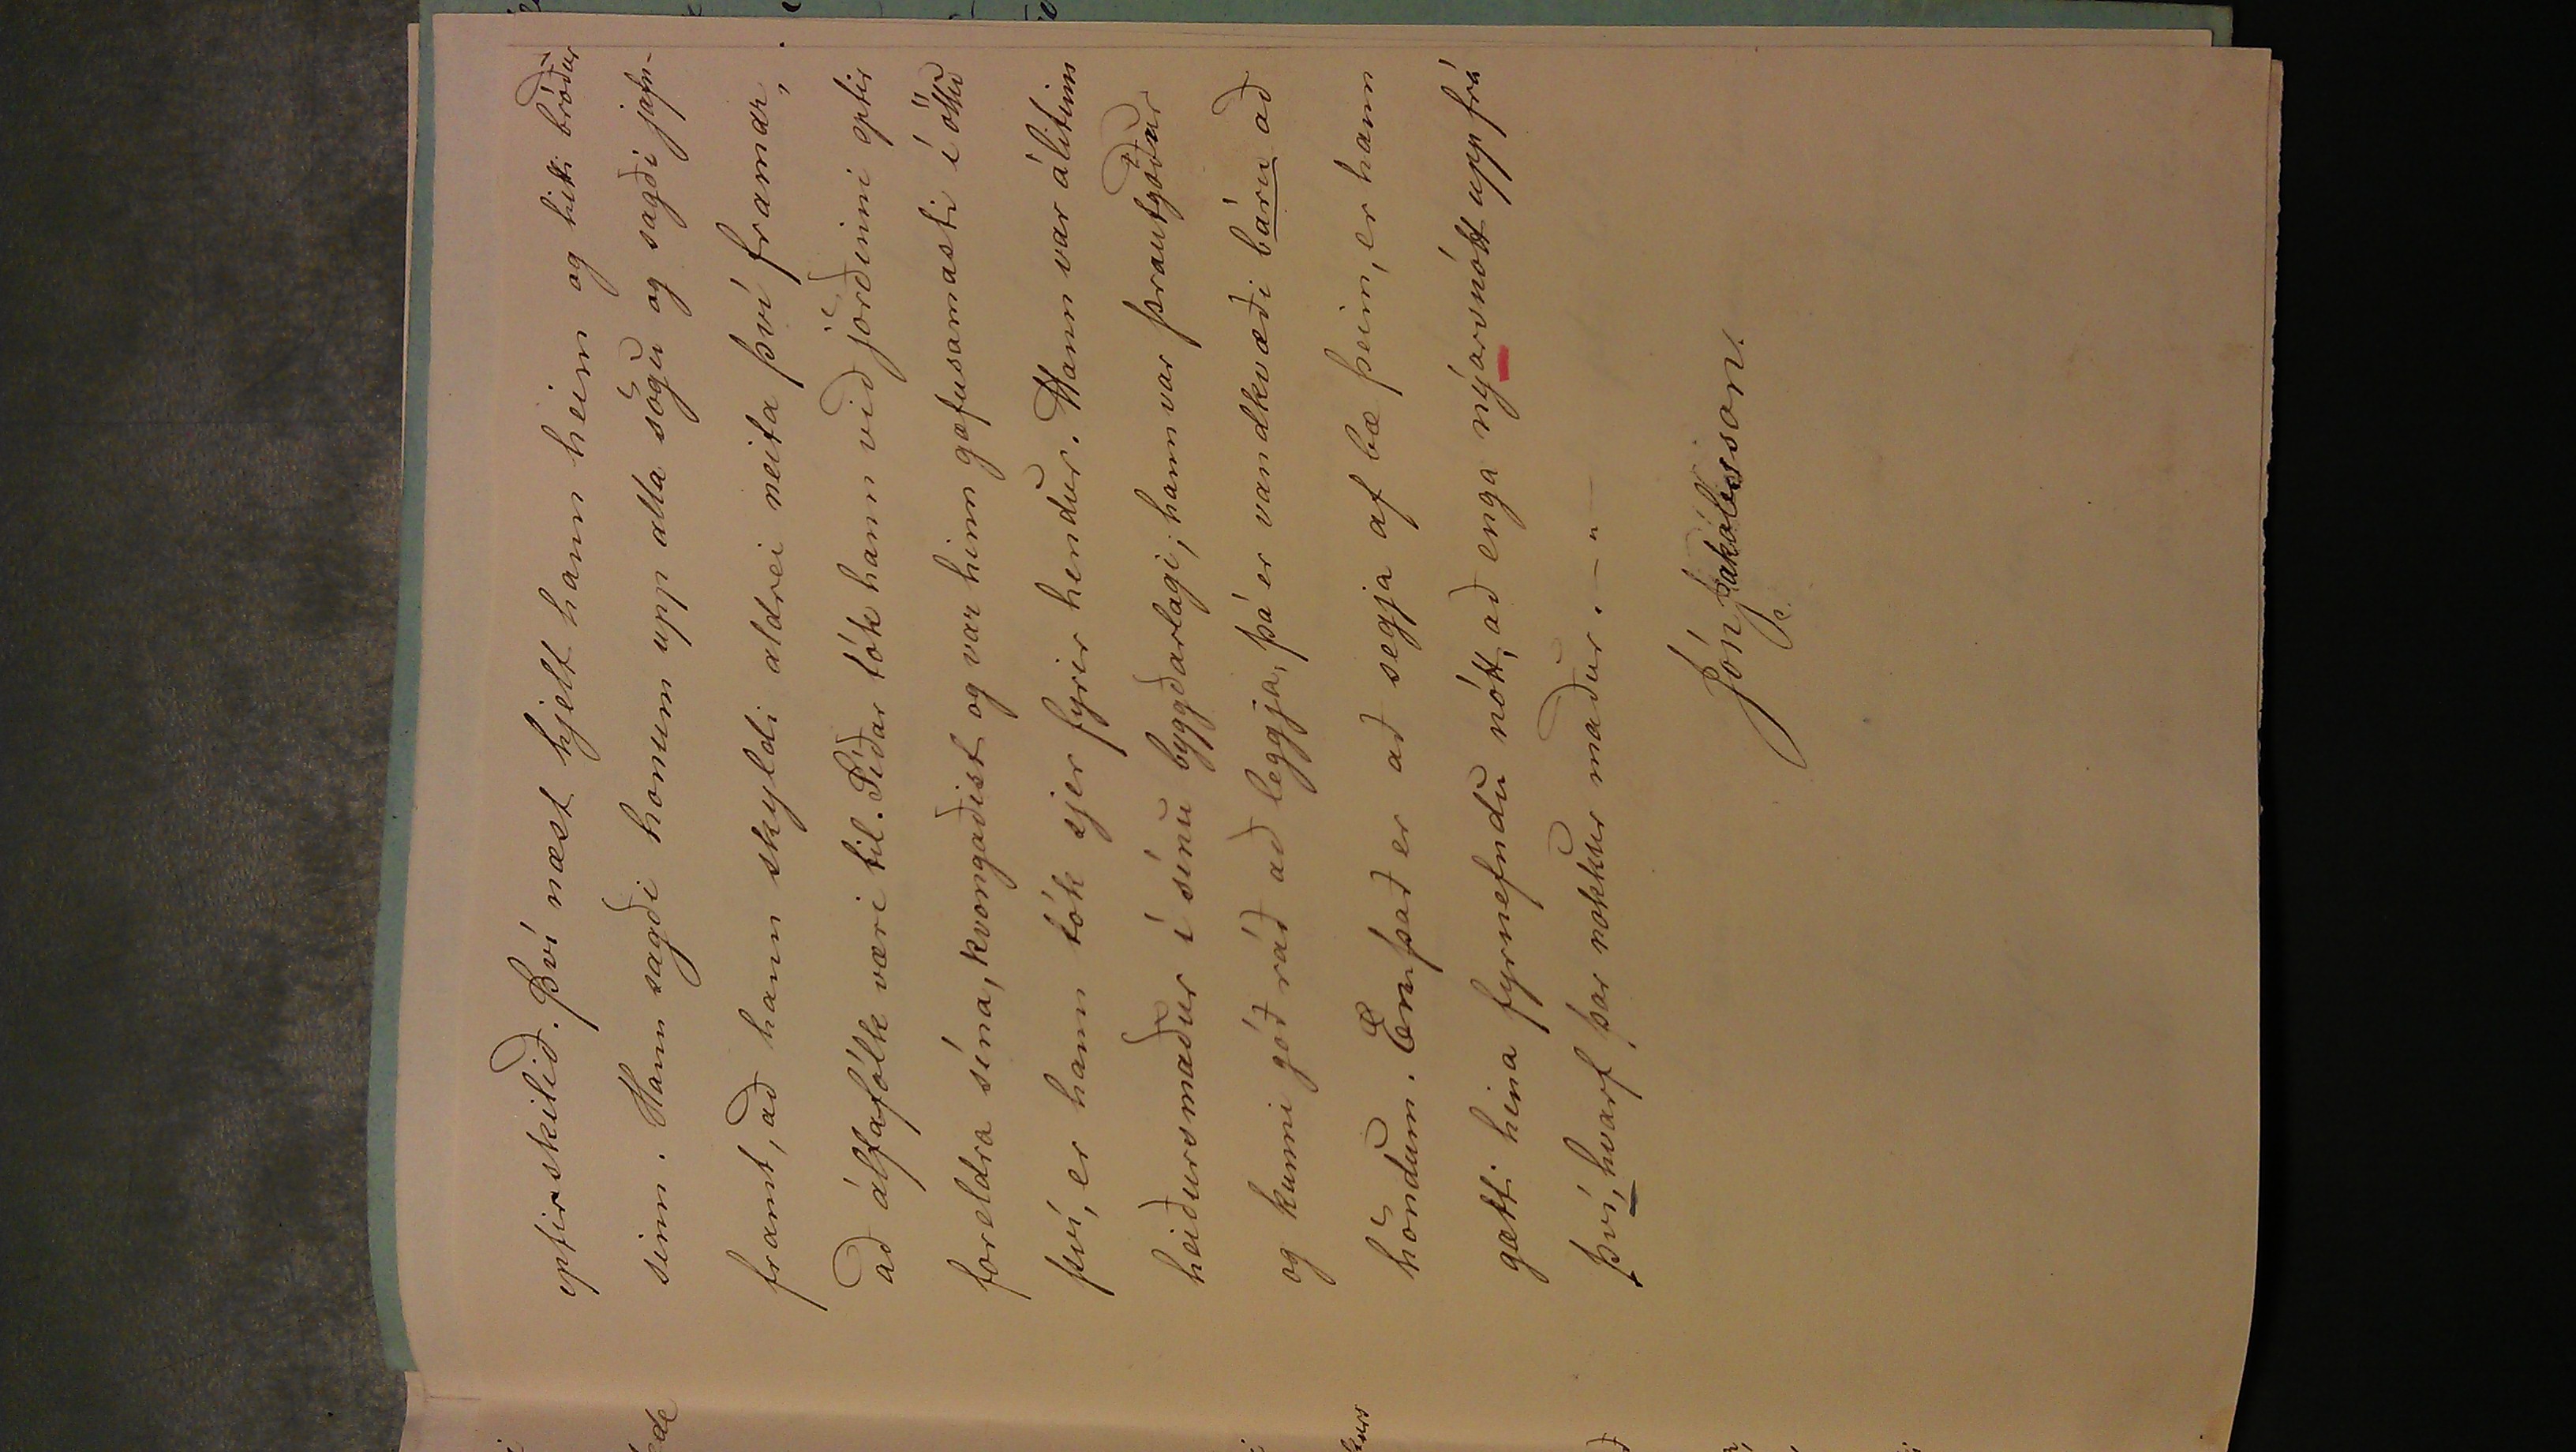 eptirskilið. Því næst hjelt hann heim og hitti bróður
sinn. Hann sagði honum upp alla sögu og sagði jafn-
framt, að hann skyldi aldrei neita því framar,
að álfafólk væri til. Síðar tók hann við jörðinni eptir
foreldra sína, kvongaðist og var hinn gæfusamasti í öllu
því, er hann tók sjer fyrir hendur. Hann var álitinn
heiðursmaður í sínu byggðarlagi; hann var þrautgóður
og kunni góð ráð að leggja, þá er vandkvæði báru að
höndum. En það er að segja af bæ þeim, er hann
gætti hina fyrnefndu nótt, að enga nýársnótt upp frá
því, hvarf þar nokkur maður. — " —
Jón Jakobsson.